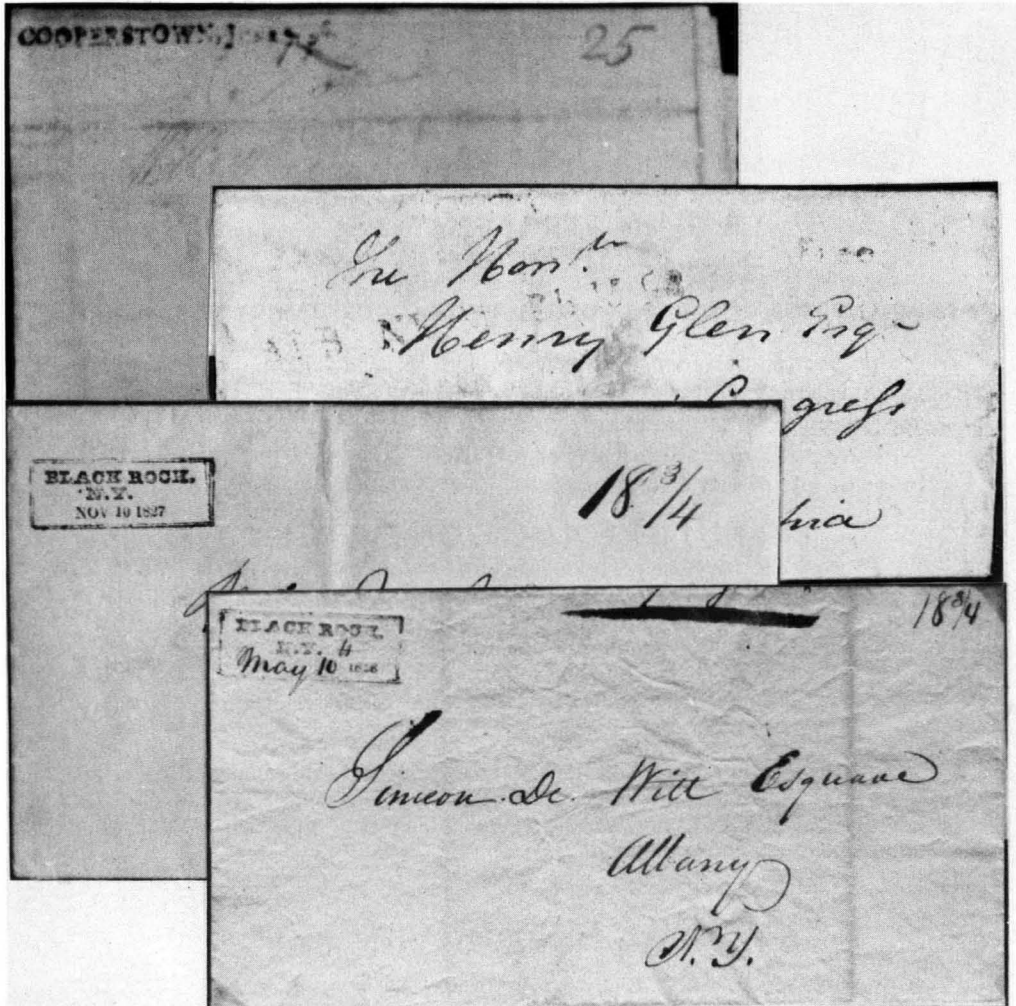 COOPERSTOWN,
25
The Hon.
Henry Glen Esqr
Congress
BLACK ROCK.
N.Y.
NOV 10 1827
18 3/4
BLACK ROCK.
N.Y.
May 10 1828
18 3/4
Simeon De Witt Esquare
Albany
N.Y.